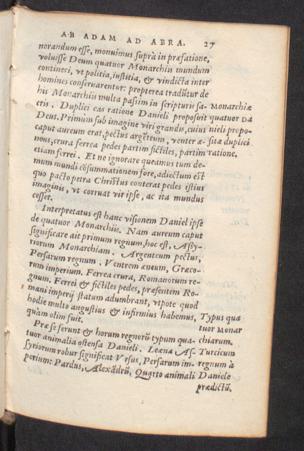 AB ADAM AD ABRA. 27
norandum esse, monuimus suprà in præfatione,
voluisse Deum quatuor Monarchiis mundum
contineri, vt politia, iustitia, & vindicta inter
homines conseruarentur: propterea traditur de
his Monarchiis multa passim in scripturis sa- Monarchiæ
cris. Duplici eas ratione Danieli proposuit quatuor Da
Deus. Primùm sub imagine viri grandis, cuius nieli propo-
caput aureum erat, pectus argẽteum, venter æ- sitæ duplici
neus, crura ferrea pedes partim fictiles, partim ratione.
etiam ferrei. Et ne ignorare queamus tum de-
mum mundi cõsummationem fore, adiectum est
quo pacto petra Christus conterat pedes istius
imaginis, vt corruat vir ipse, ac ita mundus
cesset.
Interpretatus est hanc visionem Daniel ipse
de quatuor Monarchiis. Nam aureum caput
significare ait primum regnum, hoc est, Assy-
riorum Monarchiam. Argenteum pectus,
Persarum regnum. Ventrem æneum, Græco-
rum imperium. Ferrea crura, Romanorum re-
gnum. Ferrei & fictiles pedes, præsentem Ro-
mani imperij statum adumbrant, vtpote quod
hodie multò angustius & infirmius habemus, Typus qua
quàm olim fuit. tuor Monar
Præ se ferunt & horum regnorũ typum qua- chiarum.
tuor animalia ostensa Danieli. Leæna As- Turcicum
syriorum robur significat Vrsus, Persarum im- regnum à
perium: Pardus, Alexãdrũ, Quarto animali Daniele
prædictũ.